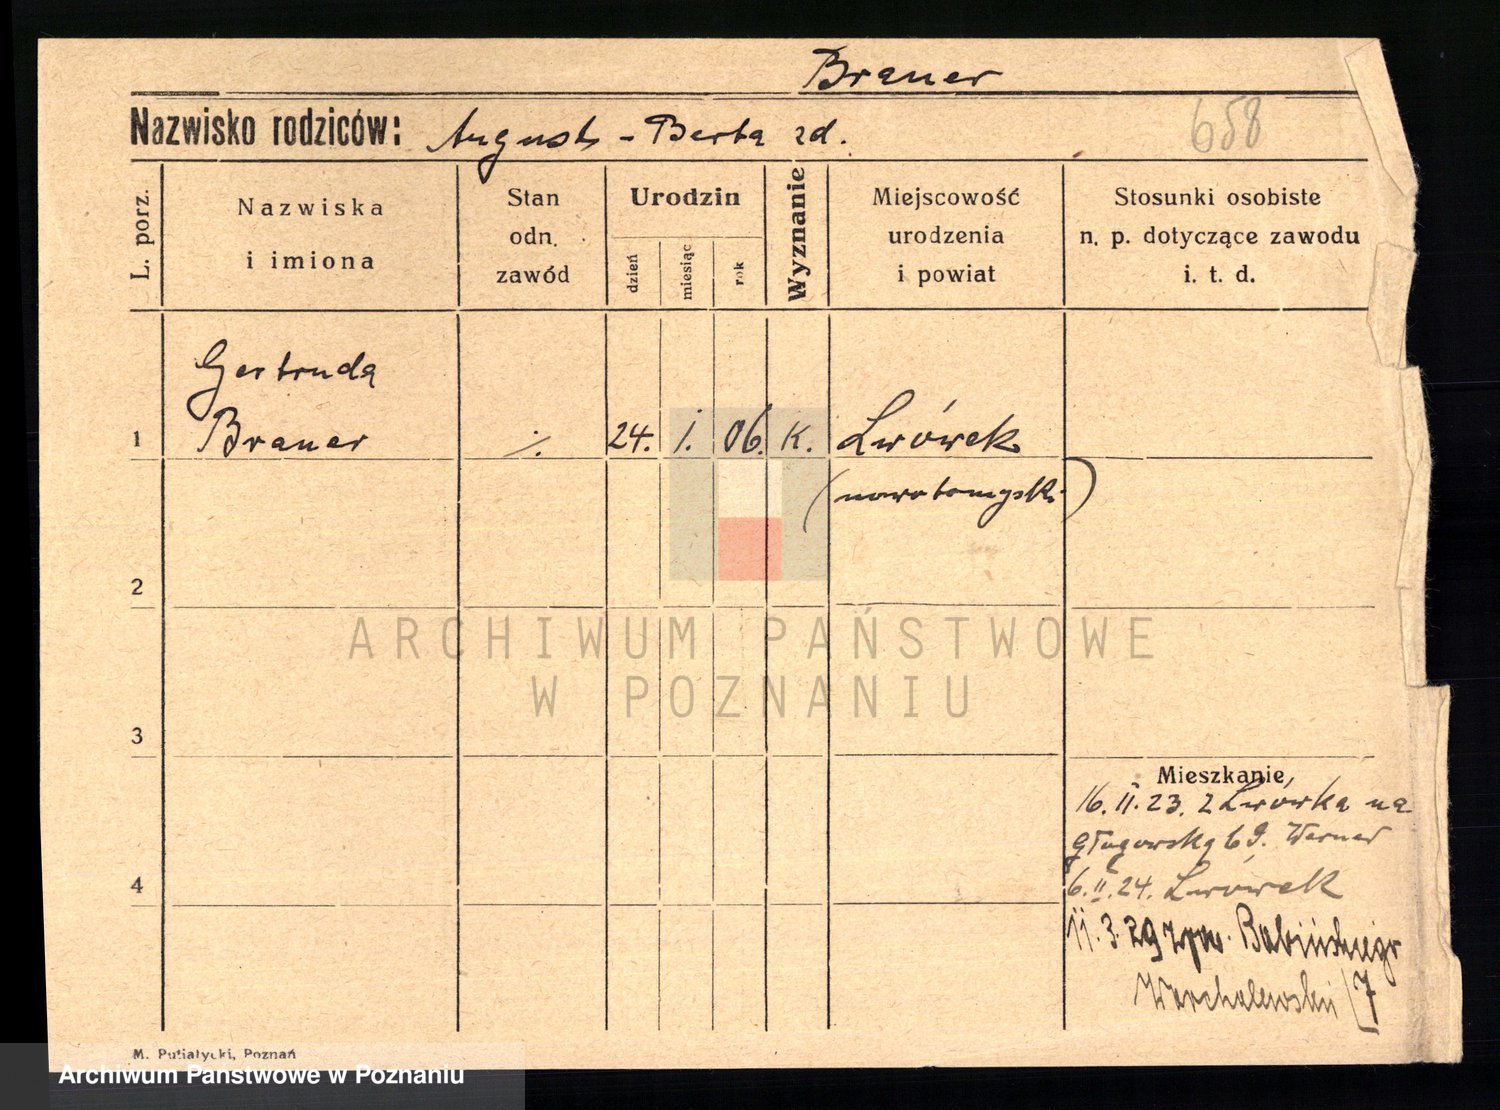 Brauer
658
Nazwisko rodziców: August - Berta zd.
L. porz.
Nazwiska
i imiona
Stan
odn.
zawód
Urodzin
dzień
miesiąc
rok
Wyznanie
Miejscowość
urodzenia
i powiat
Stosunki osobiste
n. p. dotyczące zawodu
i. t. d.
Gertruda
1 Brauer ./. 24. 1. 06. K. Lwówek
(nowotomyski)
2
3
4
Mieszkanie
16.II.23. z Lwówka na
6. Werner
6.II.24. Lwówek
11.3.29 Babińskiego
Warchalewski 7
M. Putiatycki, Poznań
ARCHIWUM PAŃSTWOWE
W POZNANIU
Archiwum Państwowe w Poznaniu